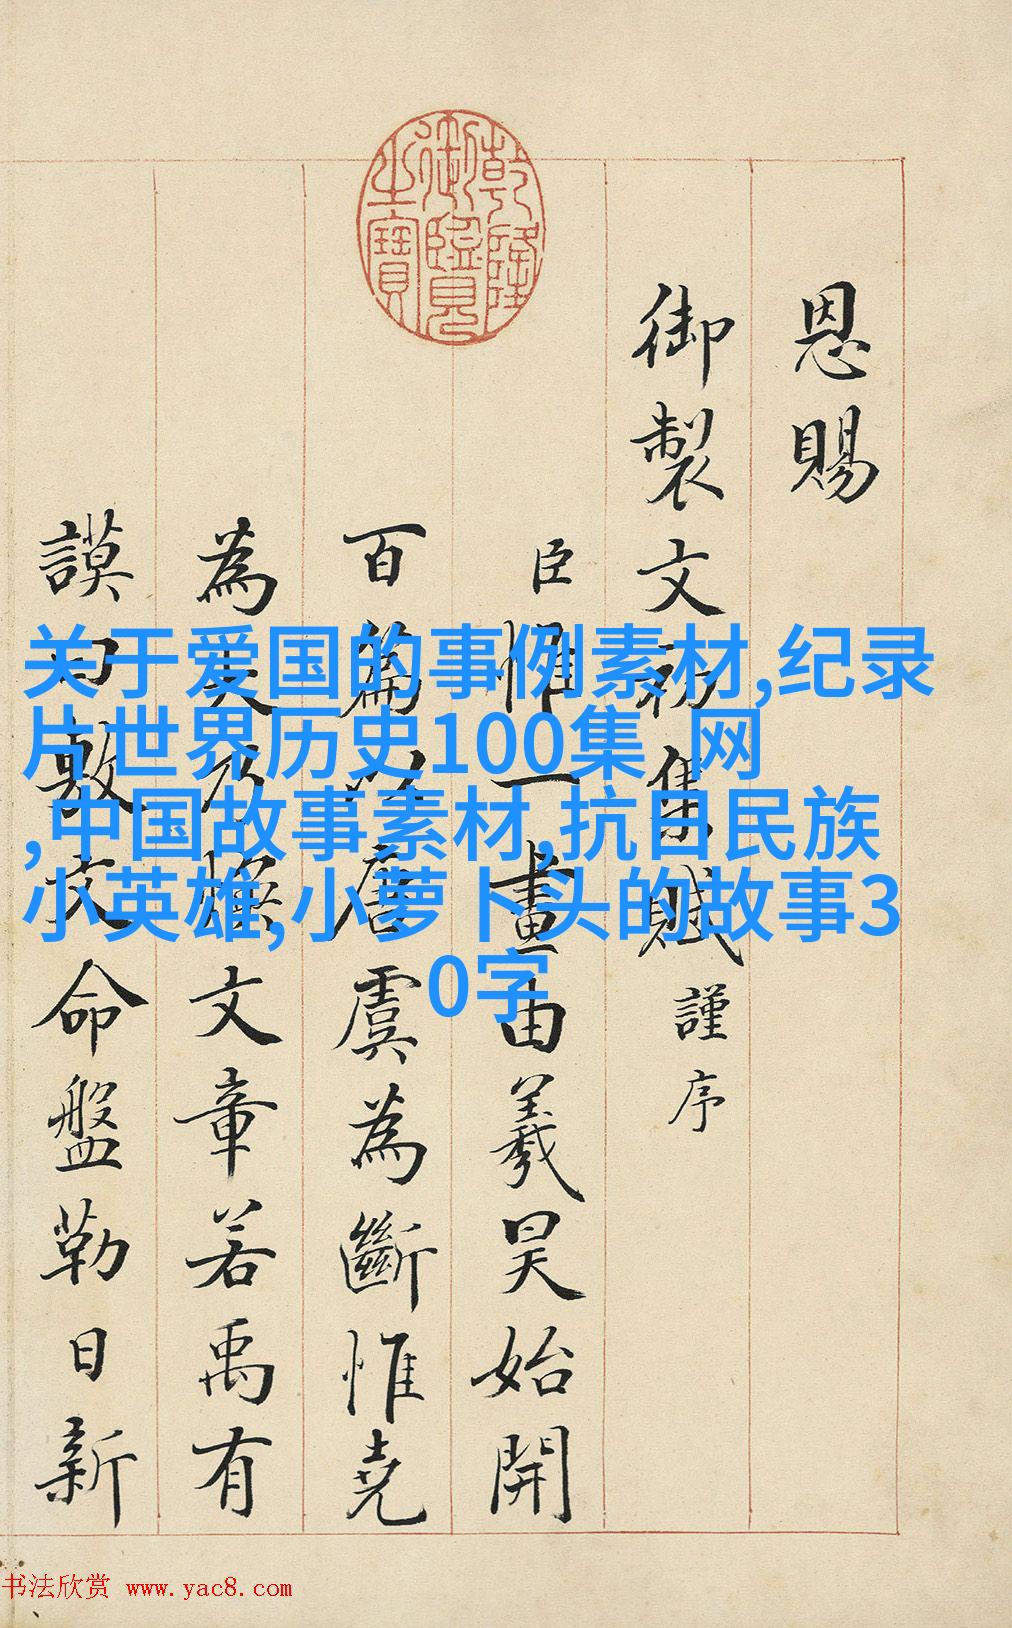 乾隆
御覽
之寶
恩賜
御製文初集賦謹序
臣惟一畫由羲昊始開
百篇以唐虞為斷惟堯
為大乃煥文章若禹有
謨曰敷文命盤勒日新
关于爱国的事例素材,纪录
片世界历史100集 网
,中国故事素材,抗日民族
小英雄,小萝卜头的故事3
0字
书法欣赏 www.yac8.com